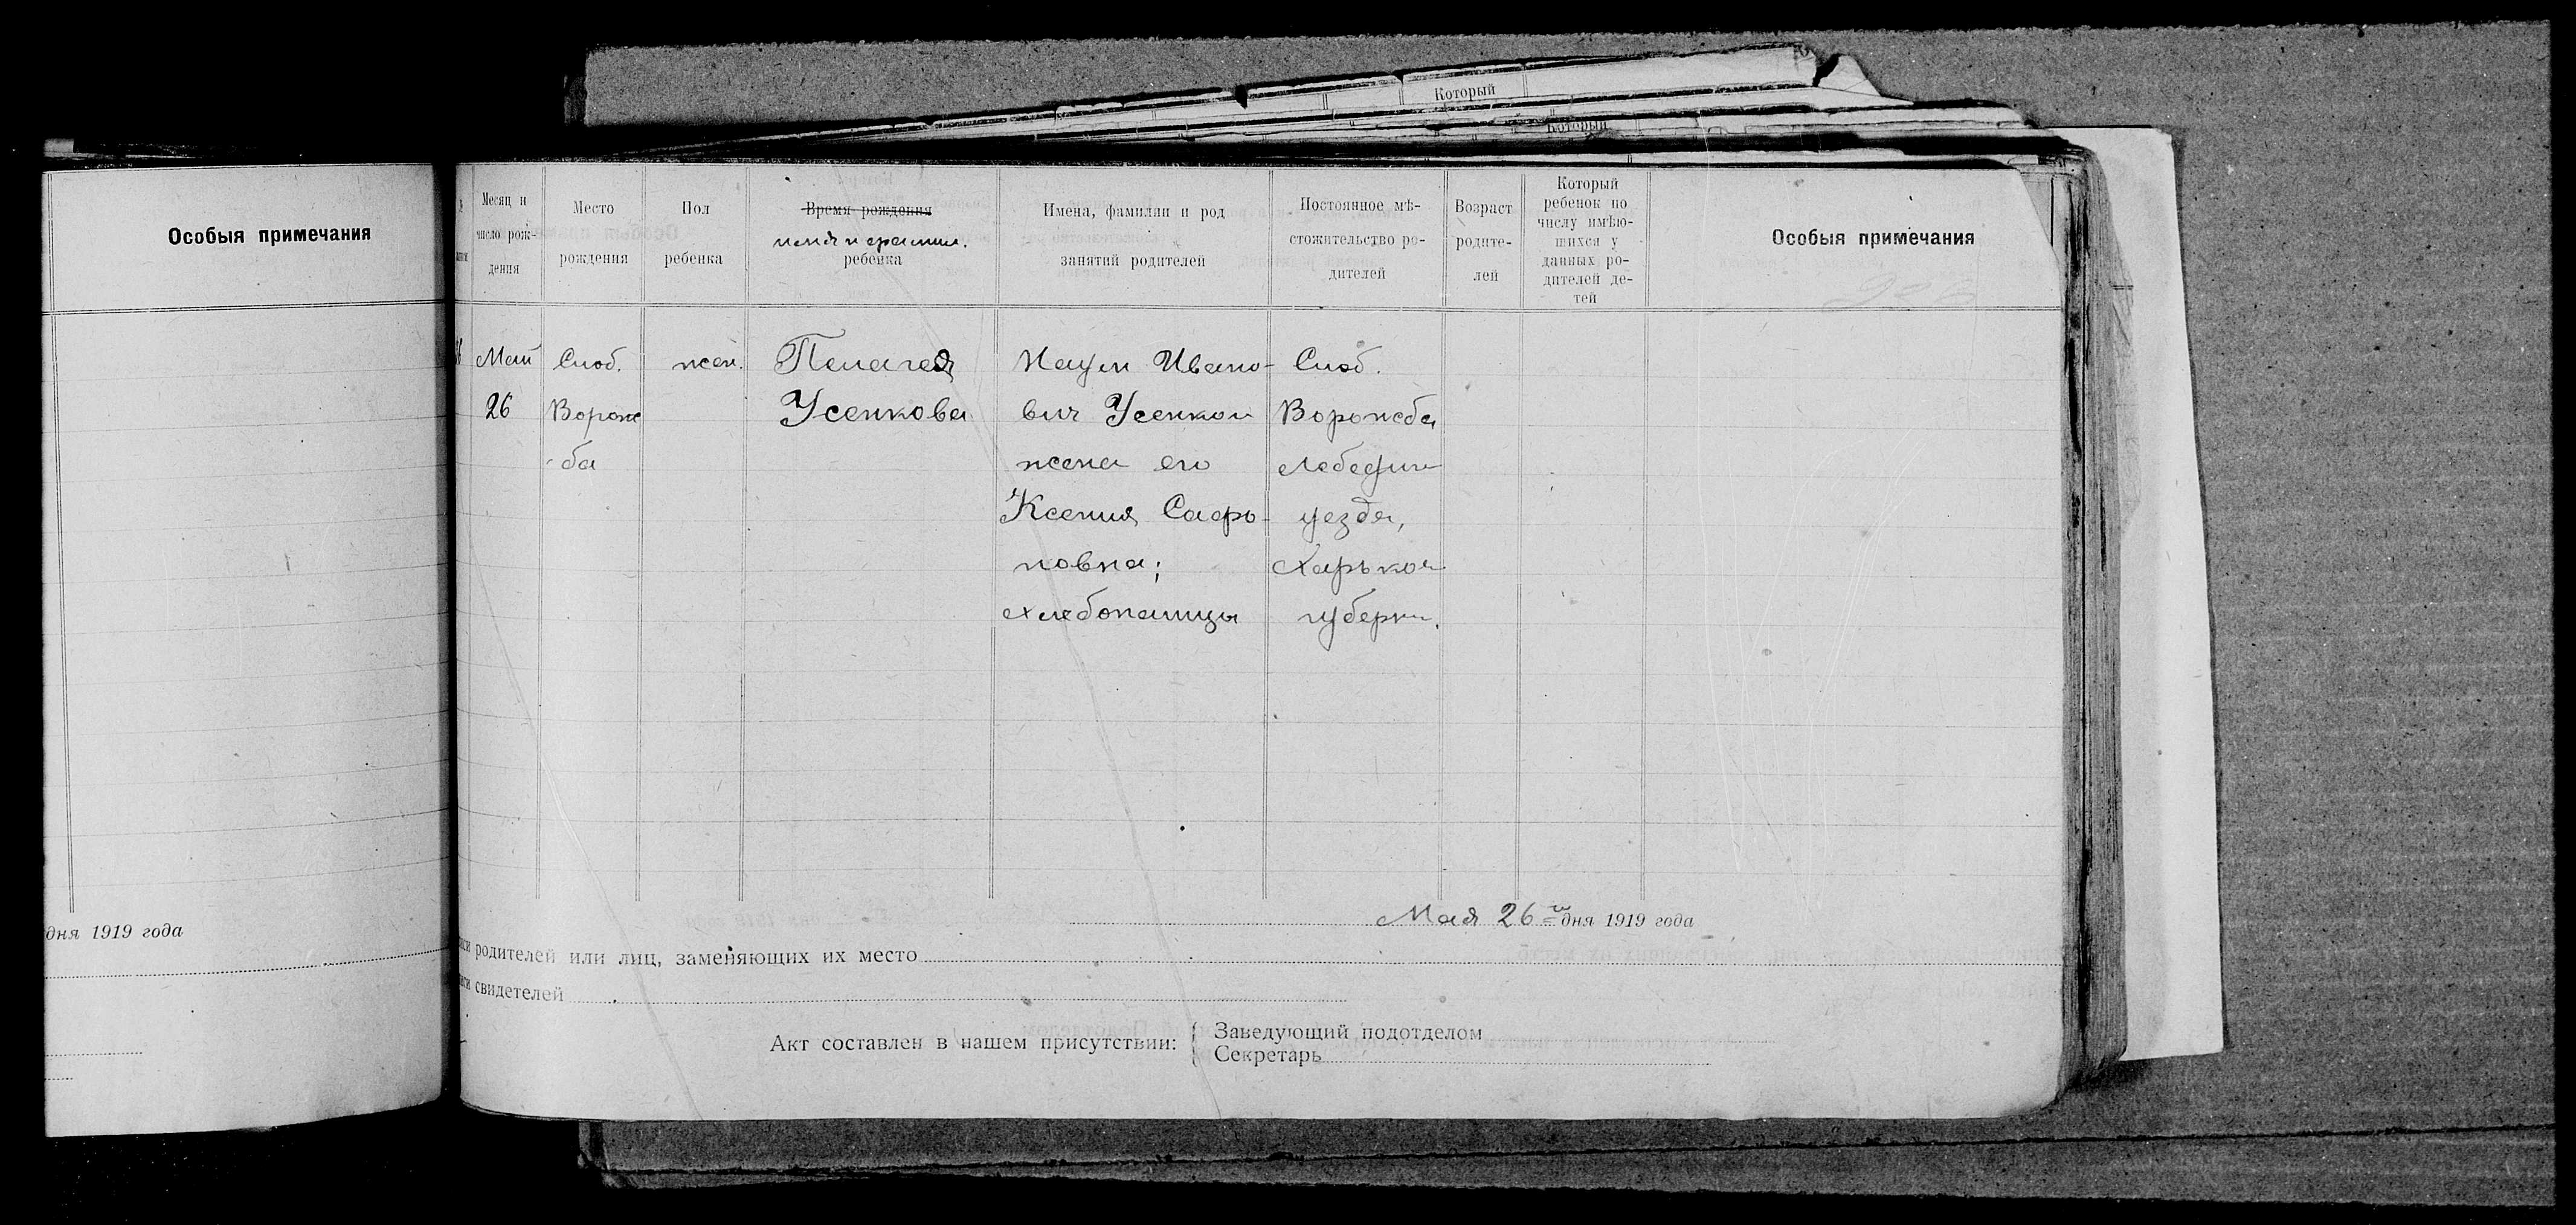 Который
Который
Особыя примечания
дня 1919 года
Месяц и
число рож-
дения
Место
рождения
Пол
ребенка
Время рождения
имя и фамил.
ребенка
Имена, фамилии и род
занятий родителей
Постоянное мѣ-
стожительство ро-
дителей
Возраст
родите-
лей
Который
ребенок по
числу имѣю-
шихся у
данных ро-
дителей де-
тей
Особыя примечания
Май
26
Слоб.
Ворож
ба
жен.
Пелагея
Усенкова
Наум Ивано-
вич Усенков
жена его
Ксения Сафро-
новна;
хлебопашцы
Слоб.
Ворожба
Лебедин
уезда,
Харьков
губерн.
Мая 26 го дня 1919 года
родителей или лиц, заменяющих их место
свидетелей
Акт составлен в нашем присутствии:
Заведующий подотделом
Секретарь